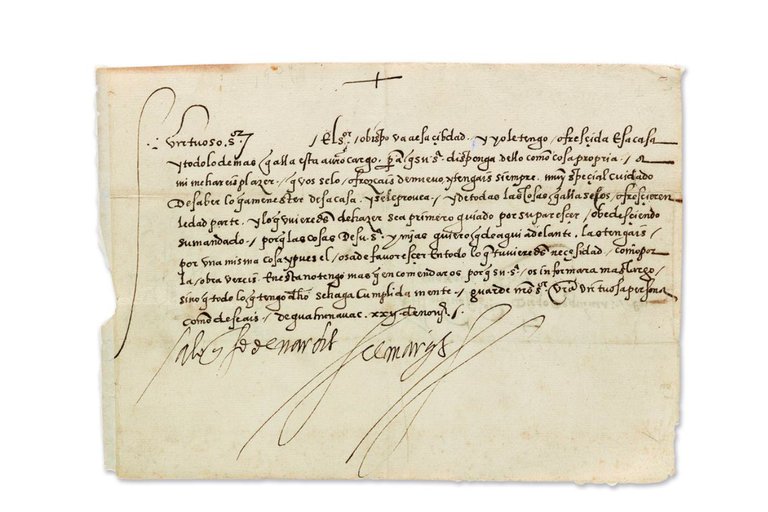 virtuoso s.or / El s.or obispo va a esa çibdad . y yo le tengo / ofresçida Esa casa
y todo lo demas q̃ alla esta a vr̃o cargo . p̃a q̃ su s.a disponga dello como cosa propria /
mi me hareis plazer / q̃ vos se lo / ofrezcais de nuevo . y tengais siempre . muy speçial cuidado
De saber lo q̃ a menester de sa casa . y se le provea / y De todas las cosas / q̃ alla se / ofresçieren
le dad parte . y lo q̃ uvieredes de hazer sea primero guiado por su paresçer / obedesçiendo
su mandado . / porq̃ las cosas De su s.a y mias quiero q̃ de aqui adelante . las tengais /
por una misma cosa y pues el / os a de favoresçer En todo lo q̃ tuvieredes neçesidad / como por
la obra vereis . En esta no tengo mas q̃ encomendaros porq̃ su s.a / os informara mas largo /
sino q̃ todo lo q̃ tengo dho se haga Cumplidamente . / guarde nr̃o s.or vr̃a virtuosa persona
como deseais . / de guahunavac . xxv de nov.e /.
el marq̃s